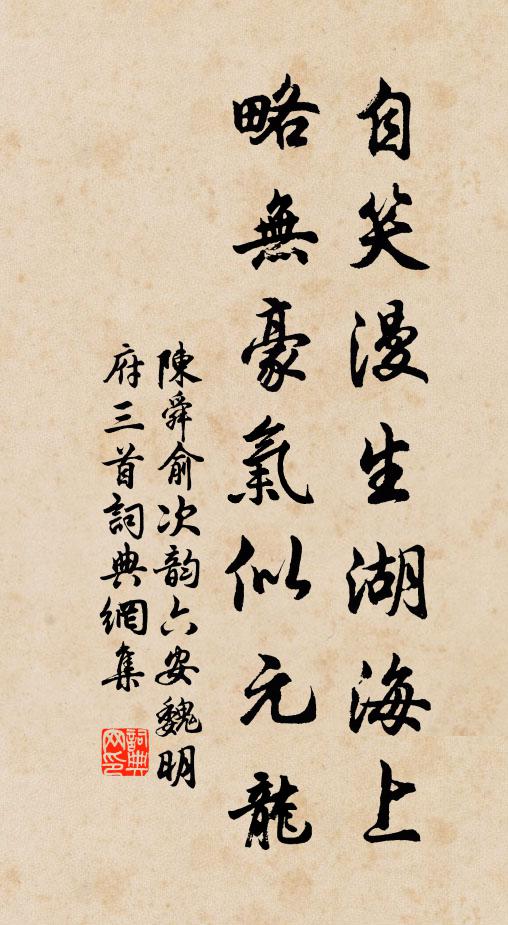 自笑漫生湖海上
略無豪氣似元龍
陳舜俞次韵六安魏明
府三首詞典網集
詞典
网印